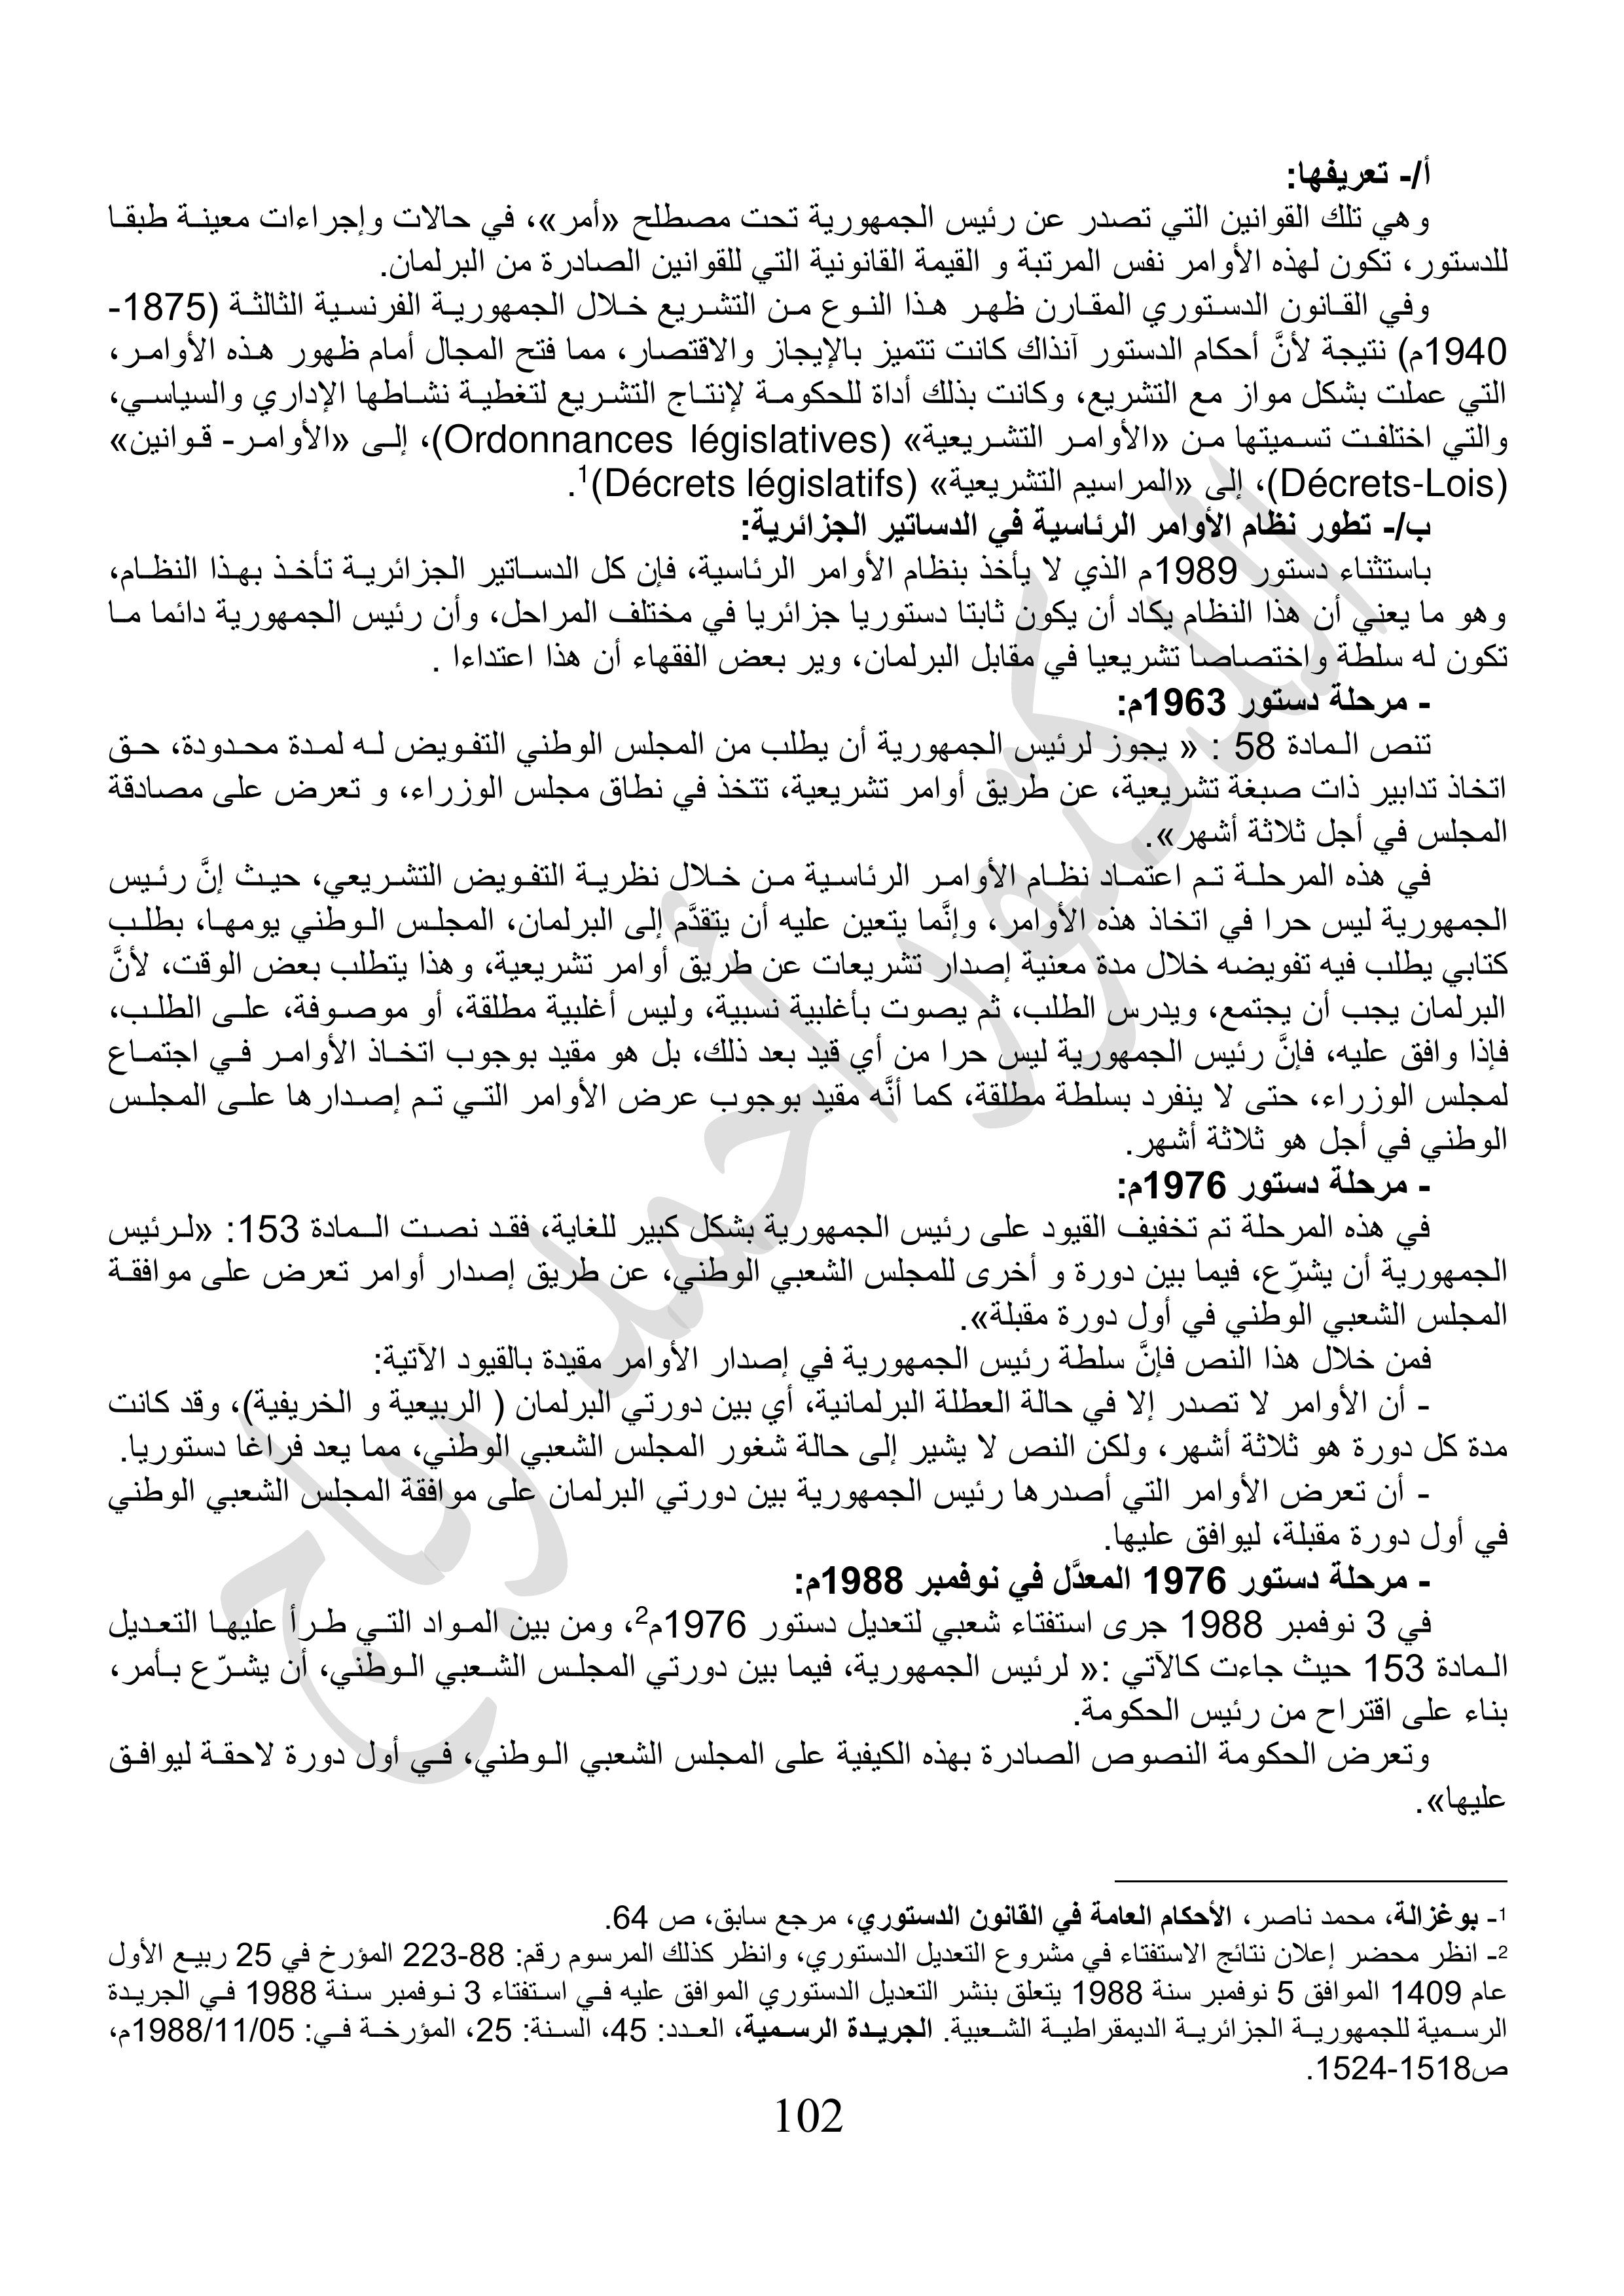 أ/- تعريفها:
وهي تلك القوانين التي تصدر عن رئيس الجمهورية تحت مصطلح «أمر»، في حالات وإجراءات معينة طبقا
للدستور، تكون لهذه الأوامر نفس المرتبة و القيمة القانونية التي للقوانين الصادرة من البرلمان.
وفي القانون الدستوري المقارن ظهر هذا النوع من التشريع خلال الجمهورية الفرنسية الثالثة (1875-
1940م) نتيجة لأنَّ أحكام الدستور آنذاك كانت تتميز بالإيجاز والاقتصار، مما فتح المجال أمام ظهور هذه الأوامر،
التي عملت بشكل مواز مع التشريع، وكانت بذلك أداة للحكومة لإنتاج التشريع لتغطية نشاطها الإداري والسياسي،
والتي اختلفت تسميتها من «الأوامر التشريعية» (Ordonnances législatives)، إلى «الأوامر- قوانين»
(Décrets-Lois)، إلى «المراسيم التشريعية» (Décrets législatifs)1.
ب/- تطور نظام الأوامر الرئاسية في الدساتير الجزائرية:
باستثناء دستور 1989م الذي لا يأخذ بنظام الأوامر الرئاسية، فإن كل الدساتير الجزائرية تأخذ بهذا النظام،
وهو ما يعني أن هذا النظام يكاد أن يكون ثابتا دستوريا جزائريا في مختلف المراحل، وأن رئيس الجمهورية دائما ما
تكون له سلطة واختصاصا تشريعيا في مقابل البرلمان، وير بعض الفقهاء أن هذا اعتداءا .
- مرحلة دستور 1963م:
تنص المادة 58 : « يجوز لرئيس الجمهورية أن يطلب من المجلس الوطني التفويض له لمدة محدودة، حق
اتخاذ تدابير ذات صبغة تشريعية، عن طريق أوامر تشريعية، تتخذ في نطاق مجلس الوزراء، و تعرض على مصادقة
المجلس في أجل ثلاثة أشهر».
في هذه المرحلة تم اعتماد نظام الأوامر الرئاسية من خلال نظرية التفويض التشريعي، حيث إنَّ رئيس
الجمهورية ليس حرا في اتخاذ هذه الأوامر، وإنَّما يتعين عليه أن يتقدَّم إلى البرلمان، المجلس الوطني يومها، بطلب
كتابي يطلب فيه تفويضه خلال مدة معنية إصدار تشريعات عن طريق أوامر تشريعية، وهذا يتطلب بعض الوقت، لأنَّ
البرلمان يجب أن يجتمع، ويدرس الطلب، ثم يصوت بأغلبية نسبية، وليس أغلبية مطلقة، أو موصوفة، على الطلب،
فإذا وافق عليه، فإنَّ رئيس الجمهورية ليس حرا من أي قيد بعد ذلك، بل هو مقيد بوجوب اتخاذ الأوامر في اجتماع
لمجلس الوزراء، حتى لا ينفرد بسلطة مطلقة، كما أنَّه مقيد بوجوب عرض الأوامر التي تم إصدارها على المجلس
الوطني في أجل هو ثلاثة أشهر.
- مرحلة دستور 1976م:
في هذه المرحلة تم تخفيف القيود على رئيس الجمهورية بشكل كبير للغاية، فقد نصت المادة 153: «لرئيس
الجمهورية أن يشرِّع، فيما بين دورة و أخرى للمجلس الشعبي الوطني، عن طريق إصدار أوامر تعرض على موافقة
المجلس الشعبي الوطني في أول دورة مقبلة».
فمن خلال هذا النص فإنَّ سلطة رئيس الجمهورية في إصدار الأوامر مقيدة بالقيود الآتية:
- أن الأوامر لا تصدر إلا في حالة العطلة البرلمانية، أي بين دورتي البرلمان ( الربيعية و الخريفية)، وقد كانت
مدة كل دورة هو ثلاثة أشهر، ولكن النص لا يشير إلى حالة شغور المجلس الشعبي الوطني، مما يعد فراغا دستوريا.
- أن تعرض الأوامر التي أصدرها رئيس الجمهورية بين دورتي البرلمان على موافقة المجلس الشعبي الوطني
في أول دورة مقبلة، ليوافق عليها.
- مرحلة دستور 1976 المعدَّل في نوفمبر 1988م:
في 3 نوفمبر 1988 جرى استفتاء شعبي لتعديل دستور 1976م2، ومن بين المواد التي طرأ عليها التعديل
المادة 153 حيث جاءت كالآتي :« لرئيس الجمهورية، فيما بين دورتي المجلس الشعبي الوطني، أن يشرّع بأمر،
بناء على اقتراح من رئيس الحكومة.
وتعرض الحكومة النصوص الصادرة بهذه الكيفية على المجلس الشعبي الوطني، في أول دورة لاحقة ليوافق
عليها».
1- بوغزالة، محمد ناصر، الأحكام العامة في القانون الدستوري، مرجع سابق، ص 64.
2- انظر محضر إعلان نتائج الاستفتاء في مشروع التعديل الدستوري، وانظر كذلك المرسوم رقم: 88-223 المؤرخ في 25 ربيع الأول
عام 1409 الموافق 5 نوفمبر سنة 1988 يتعلق بنشر التعديل الدستوري الموافق عليه في استفتاء 3 نوفمبر سنة 1988 في الجريدة
الرسمية للجمهورية الجزائرية الديمقراطية الشعبية. الجريدة الرسمية، العدد: 45، السنة: 25، المؤرخة في: 1988/11/05م،
ص1518-1524.
102
الدكتور أحمد رباح